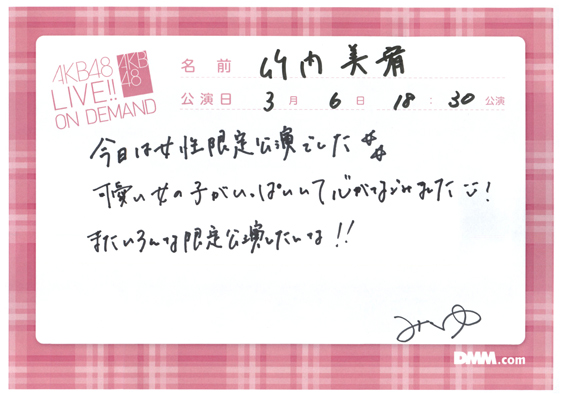 AKB48
LIVE!!
ON DEMAND
AKB
48
名前 竹内美宥
公演日 3月6日 18:30公演
今日は女性限定公演でした☆☆
可愛い女の子がいっぱいいて心がなごみました!
またいろんな限定公演したいな!!
みゆ
DMM.com